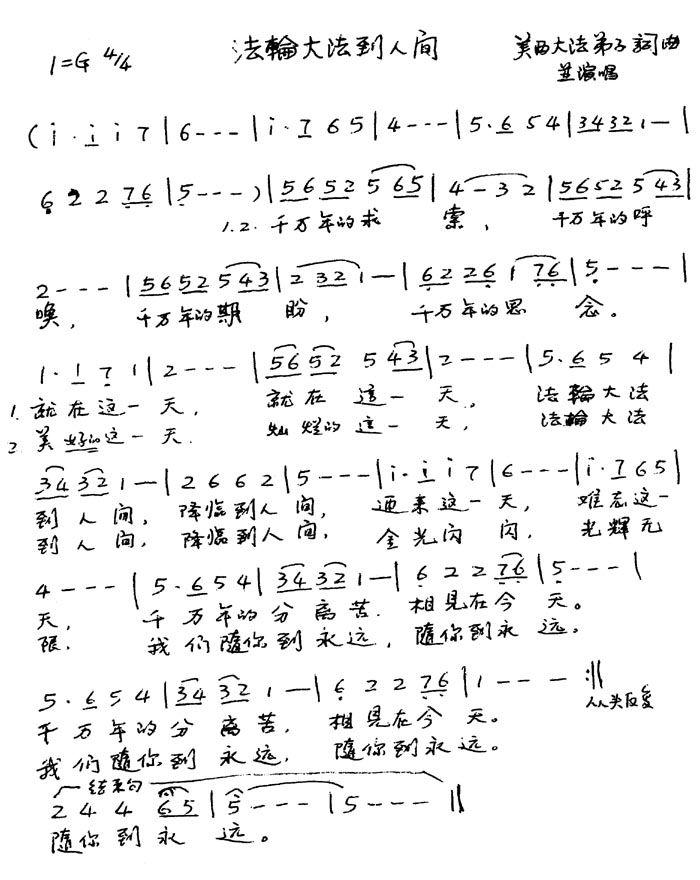 法輪大法到人间
1=G 4/4
美西大法弟子詞曲
並演唱
(i·i i 7|6---|i·7 6 5|4---|5·6 5 4|3432 1—|
6 2 2 76|5---)|5652 5 65|4-3 2|5652 5 43|
1.2. 千万年的求 索， 千万年的呼
2---|5652 5 43|2 32 1—|62 26 1 76|5---|
唤， 千万年的期 盼， 千万年的思 念。
1·1 7 1|2---|56 52 5 43|2---|5·6 5 4|
1. 就在这一 天， 就在 這一 天。 法輪大法
2. 美好的这一 天. 灿烂的這一 天， 法輪大法
34 32 1—|2 6 6 2|5---|i·i i 7|6---|i·7 6 5|
到人间， 降临到人间， 迎来这一 天， 难忘這一
到人间， 降临到人间， 金光闪 闪， 光辉无
4---|5·6 5 4|34 32 1—|6 2 2 76|5---|
天， 千万年的分离苦. 相見在今 天。
限. 我们隨你到永远， 隨你到永 远。
5·6 5 4|34 32 1—|6 2 2 76|1---:||
千万年的分离苦， 相見在今 天。 从头反复
我们隨你到永远， 隨你到永远。
结束句
2 4 4 65|5---|5---||
隨你到永 远。